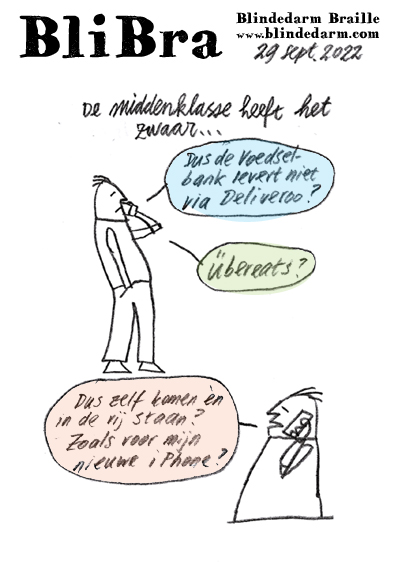 BliBra
Blindedarm Braille
www.blindedarm.com
29 sept. 2022
De middenklasse heeft het
zwaar...
Dus de Voedsel-
bank levert niet
via Deliveroo?
Übereats?
Dus zelf komen èn
in de rij staan?
Zoals voor mijn
nieuwe iPhone?